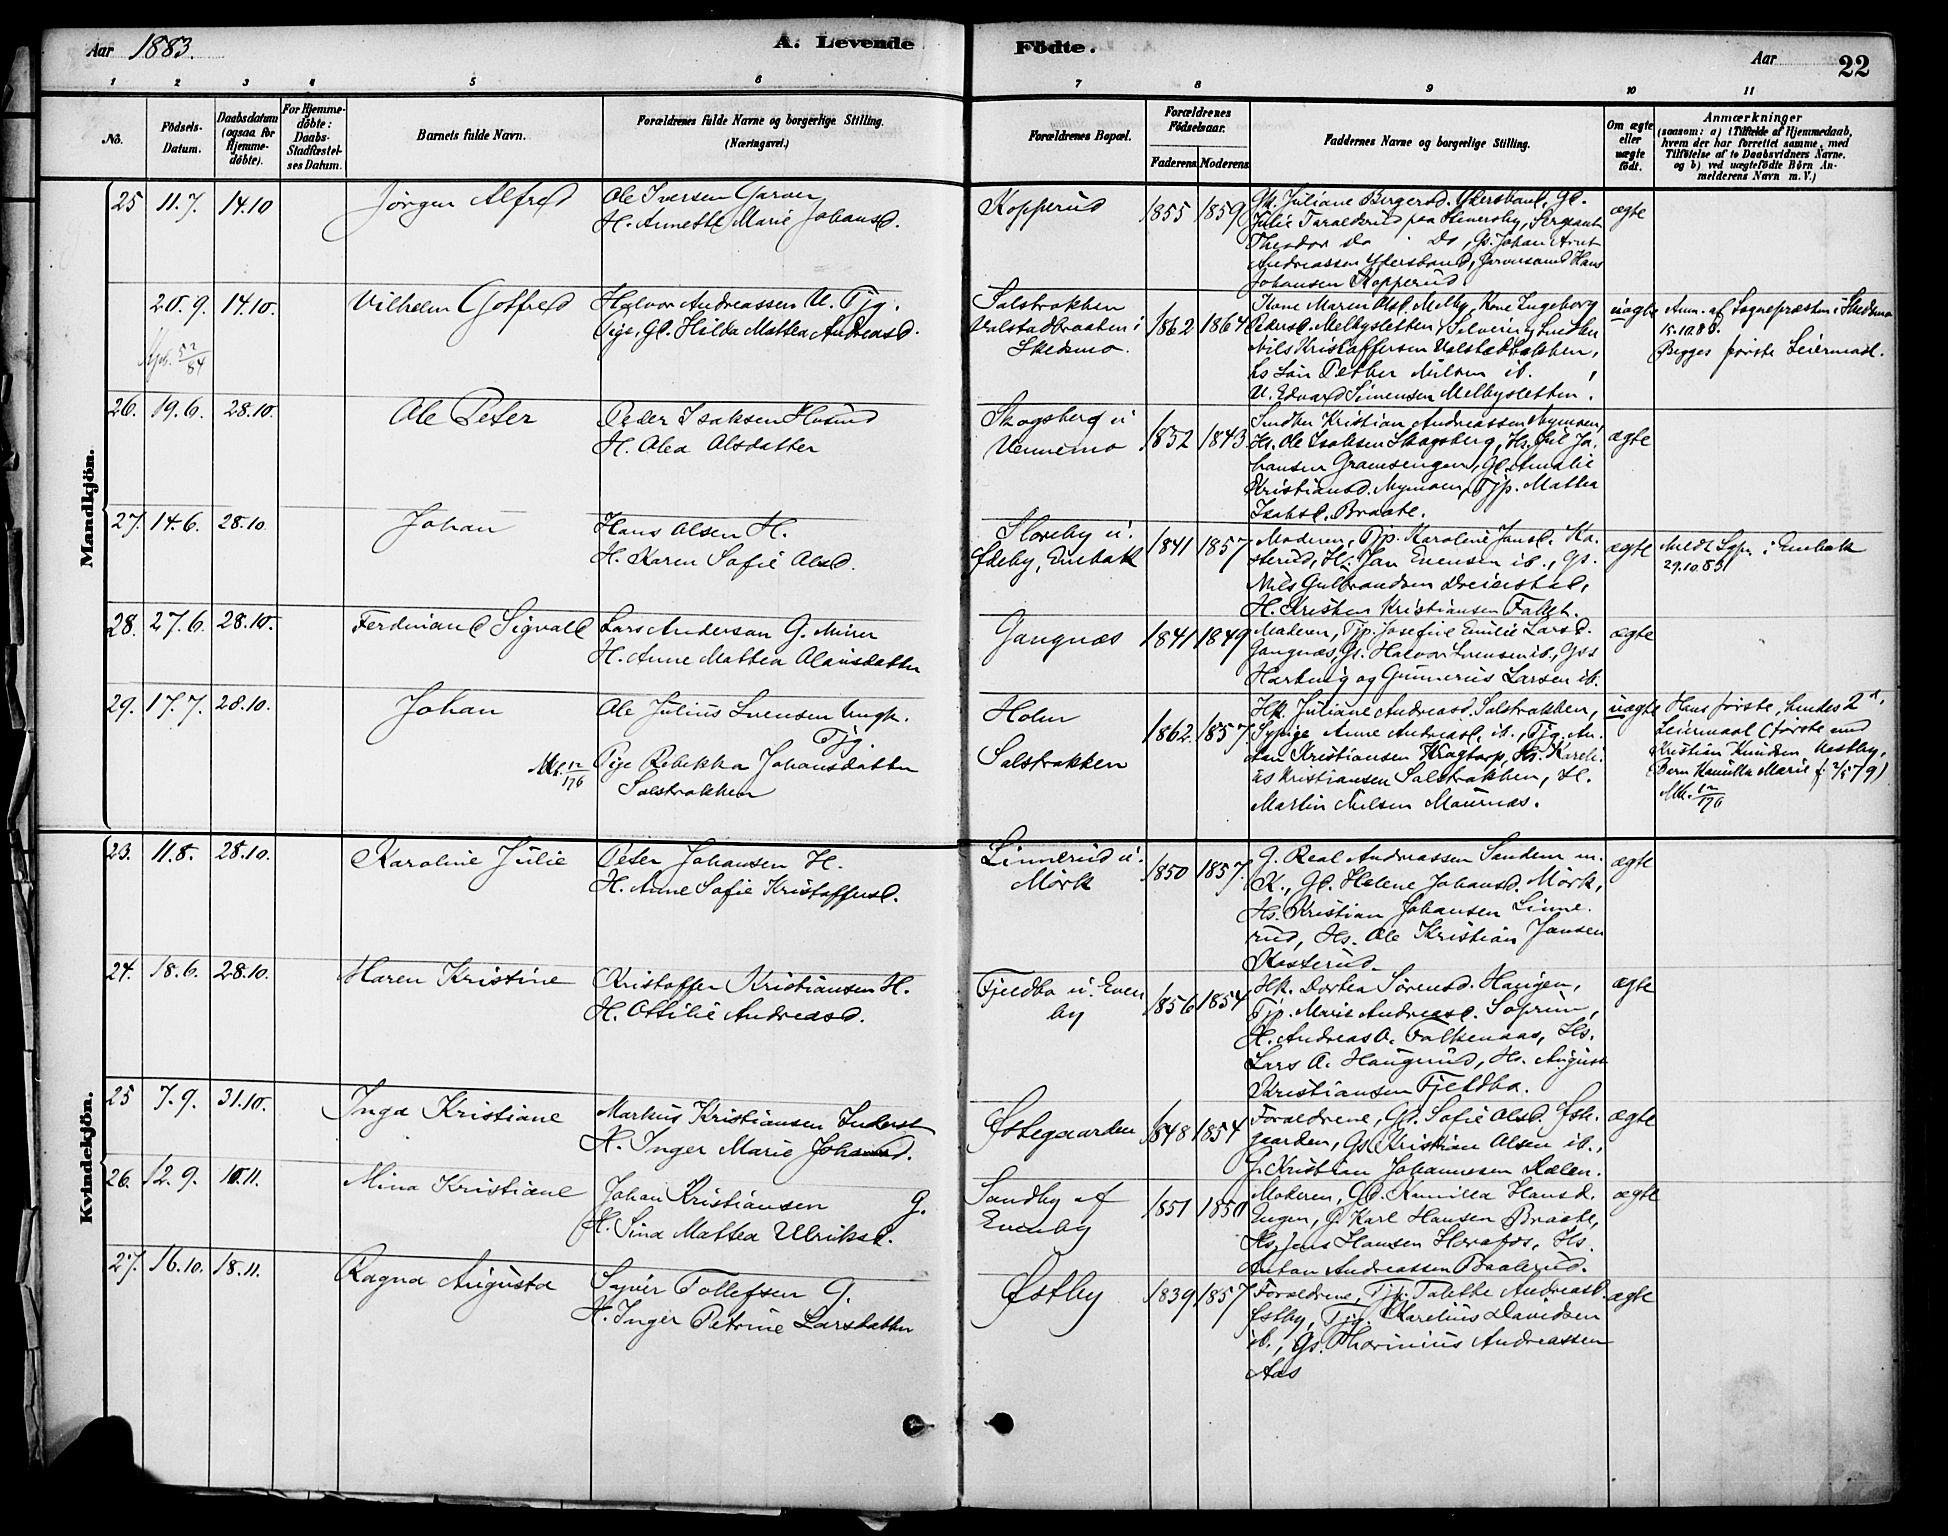 Aar 1883. A. Levende Födte. Aar 22
1 2 3 4 5 6 7 8 9 10 11
No. Födsels-Datum. Daabsdatum (ogsaa for Hjemmedöbte). For Hjemmedöbte: Daabs-Stadfæstelses Datum. Barnets fulde Navn. Forældrenes fulde Navne og borgerlige Stilling. (Næringsvei.) Forældrenes Bopæl. Forældrenes Födselsaar. Faderens. Moderens. Faddernes Navne og borgerlige Stilling. Om ægte eller uægte födt. Anmærkninger (saasom: a) i Tilfælde af Hjemmedaab, hvem der har forrettet samme, med Tilföielse af to Daabsvidners Navne, og b) ved uægtefödte Börn Anmelderens Navn m. V.)
Mandkjön.
25 11.7. 14.10 Jörgen Alfred
Ole Iversen Garver
H. Annette Marie Johansd.
Kopperud 1855 1859
Julie Taraldsrud paa Hemersby, Sergeant
Theodor do do, Gs. Johan Arnt
Andreassen Ytersbaul, Garversvend Hans
Johansen Kopperud
ægte
20.9. 14.10. Vilhelm Gotfred
Halvor Andreassen U. Tjg.
Pige Gl. Hilda Mattea Andreasd.
Salstrakken
Valstadbraaten i
Skedsmo.
1862 1864
Kone Maren Olsd. Melby, Kone Ingeborg
Pedersd. Melbysletten, Selveier
Nils Kristoffersen Valstadbakken,
hs Sön Petter Nilsen ib.
U. Edvard Simensen Melbysletten.
uægte
Anm. af Sognepræsten i Skedsmo
15.10.83.
Begges förste Leiermaal.
52/84
26. 19.6. 28.10. Ole Peter
Peder Isaksen Husmd
H. Olea Olsdatter
Skogsberg u
Vennemo
1852 1843
Smedker Kristian Andreassen Nymoen,
Hs. Ole Isaksen Skogsberg, Hs. Jul Jo-
hansen Gransengen, Gl. Amalie
Kristiansd. Nymoen, Tjp. Mattea
Isaksd. Braate.
ægte
27. 14.6. 28.10 Johan
Hans Olsen H.
H. Karen Sofie Olsd.
Sloreby u.
Ødeby, Enebak
1841 1857
Moderen, Tjp. Karoline Jansd. Ko-
sterud, H. Jan Evensen ib., Gs.
Nils Gulbrandsen
H. Kristen Kristiansen Fallet.
ægte
Meldt Sgpr. i Enebak
29.10.83
28. 27.6. 28.10. Ferdinand Sigvald
Lars Andersen G. Murer
H. Anne Mattea Olausdatter
Gangnæs 1841 1849
Moderen, Tjp. Josefine Emilie Larsd.
Gangnæs, Gs. Halvor Svensen ib., Gss
Hartvig og Gunnerius Larsen ib.
ægte
29. 17.7. 28.10. Johan
Ole Julius Svensen Ungk.
Tjg.
Pige Rebekka Johansdatter
Salstrakken
Mk. 12/176
Holm
Salstrakken
1862. 1857.
Hk. Juliane Andreasd. Salstrakken,
Sypige Anne Andreasd. ib., Tjg. An-
ton Kristiansen Kragtorp, Hs. Kareli-
us Kristiansen Salstrakken, H.
Martin Nilsen Maurnæs.
uægte
Hans förste, hendes 2det
Leiermaal (förste med
Kristian Knudsen Vestby,
Barn Kamilla Marie f. 2/5 79)
Mk. 12/176
Kvindekjön.
23. 11.8. 28.10. Karoline Julie
Peter Johansen H.
H. Anne Sofie Kristoffersd.
Linnerud u.
Mörk
1850 1857.
G. Real Andreassen Sandem m.
K., Gl. Helene Johansd. Mörk,
Hs. Kristian Johansen Linne-
rud, Hs. Ole Kristian Jansen
Kosterud.
ægte
24. 18.6. 28.10. Maren Kristine
Kristoffer Kristiansen H.
H. Ottilie Andreasd.
Fjeldbo u. Even
by
1856 1854
Hk. Dortea Sörensd. Haugen,
Tjp. Marie Andreasd. Soprim,
H. Andreas A. Falkenaas, Hs.
Lars A. Haugrud, Hs. August
Kristiansen Fjeldbo.
ægte
25 7.9. 31.10. Inga Kristiane
Markus Kristiansen Inderst
H. Inger Marie Johansd.
Østegaarden 1848 1854
Forældrene, Gl. Sofie Olsd. Øste-
gaarden, Gs. Kristian Olsen ib.,
G. Kristian Johannesen Rælen.
ægte
26. 12.9. 10.11. Mina Kristiane
Johan Kristiansen G.
H. Sina Mattea Ulriksd.
Sandby af
Evenby
1851 1850
Moderen, Gl. Kamilla Hansd.
Engen, G. Karl Hansen Braate,
Hs. Jens Hansen Horafos, Hs.
Anton Andreassen Braterud.
ægte
27. 16.10. 18.11. Ragna Augusta
Syver Tollefsen G.
H. Inger Petrine Larsdatter
Østby 1839 1857
Forældrene, Tjp. Talette Andreasd.
Østby, Tjg. Karelius Davidsen
ib., Gs. Thorinius Andreassen
Aas
ægte